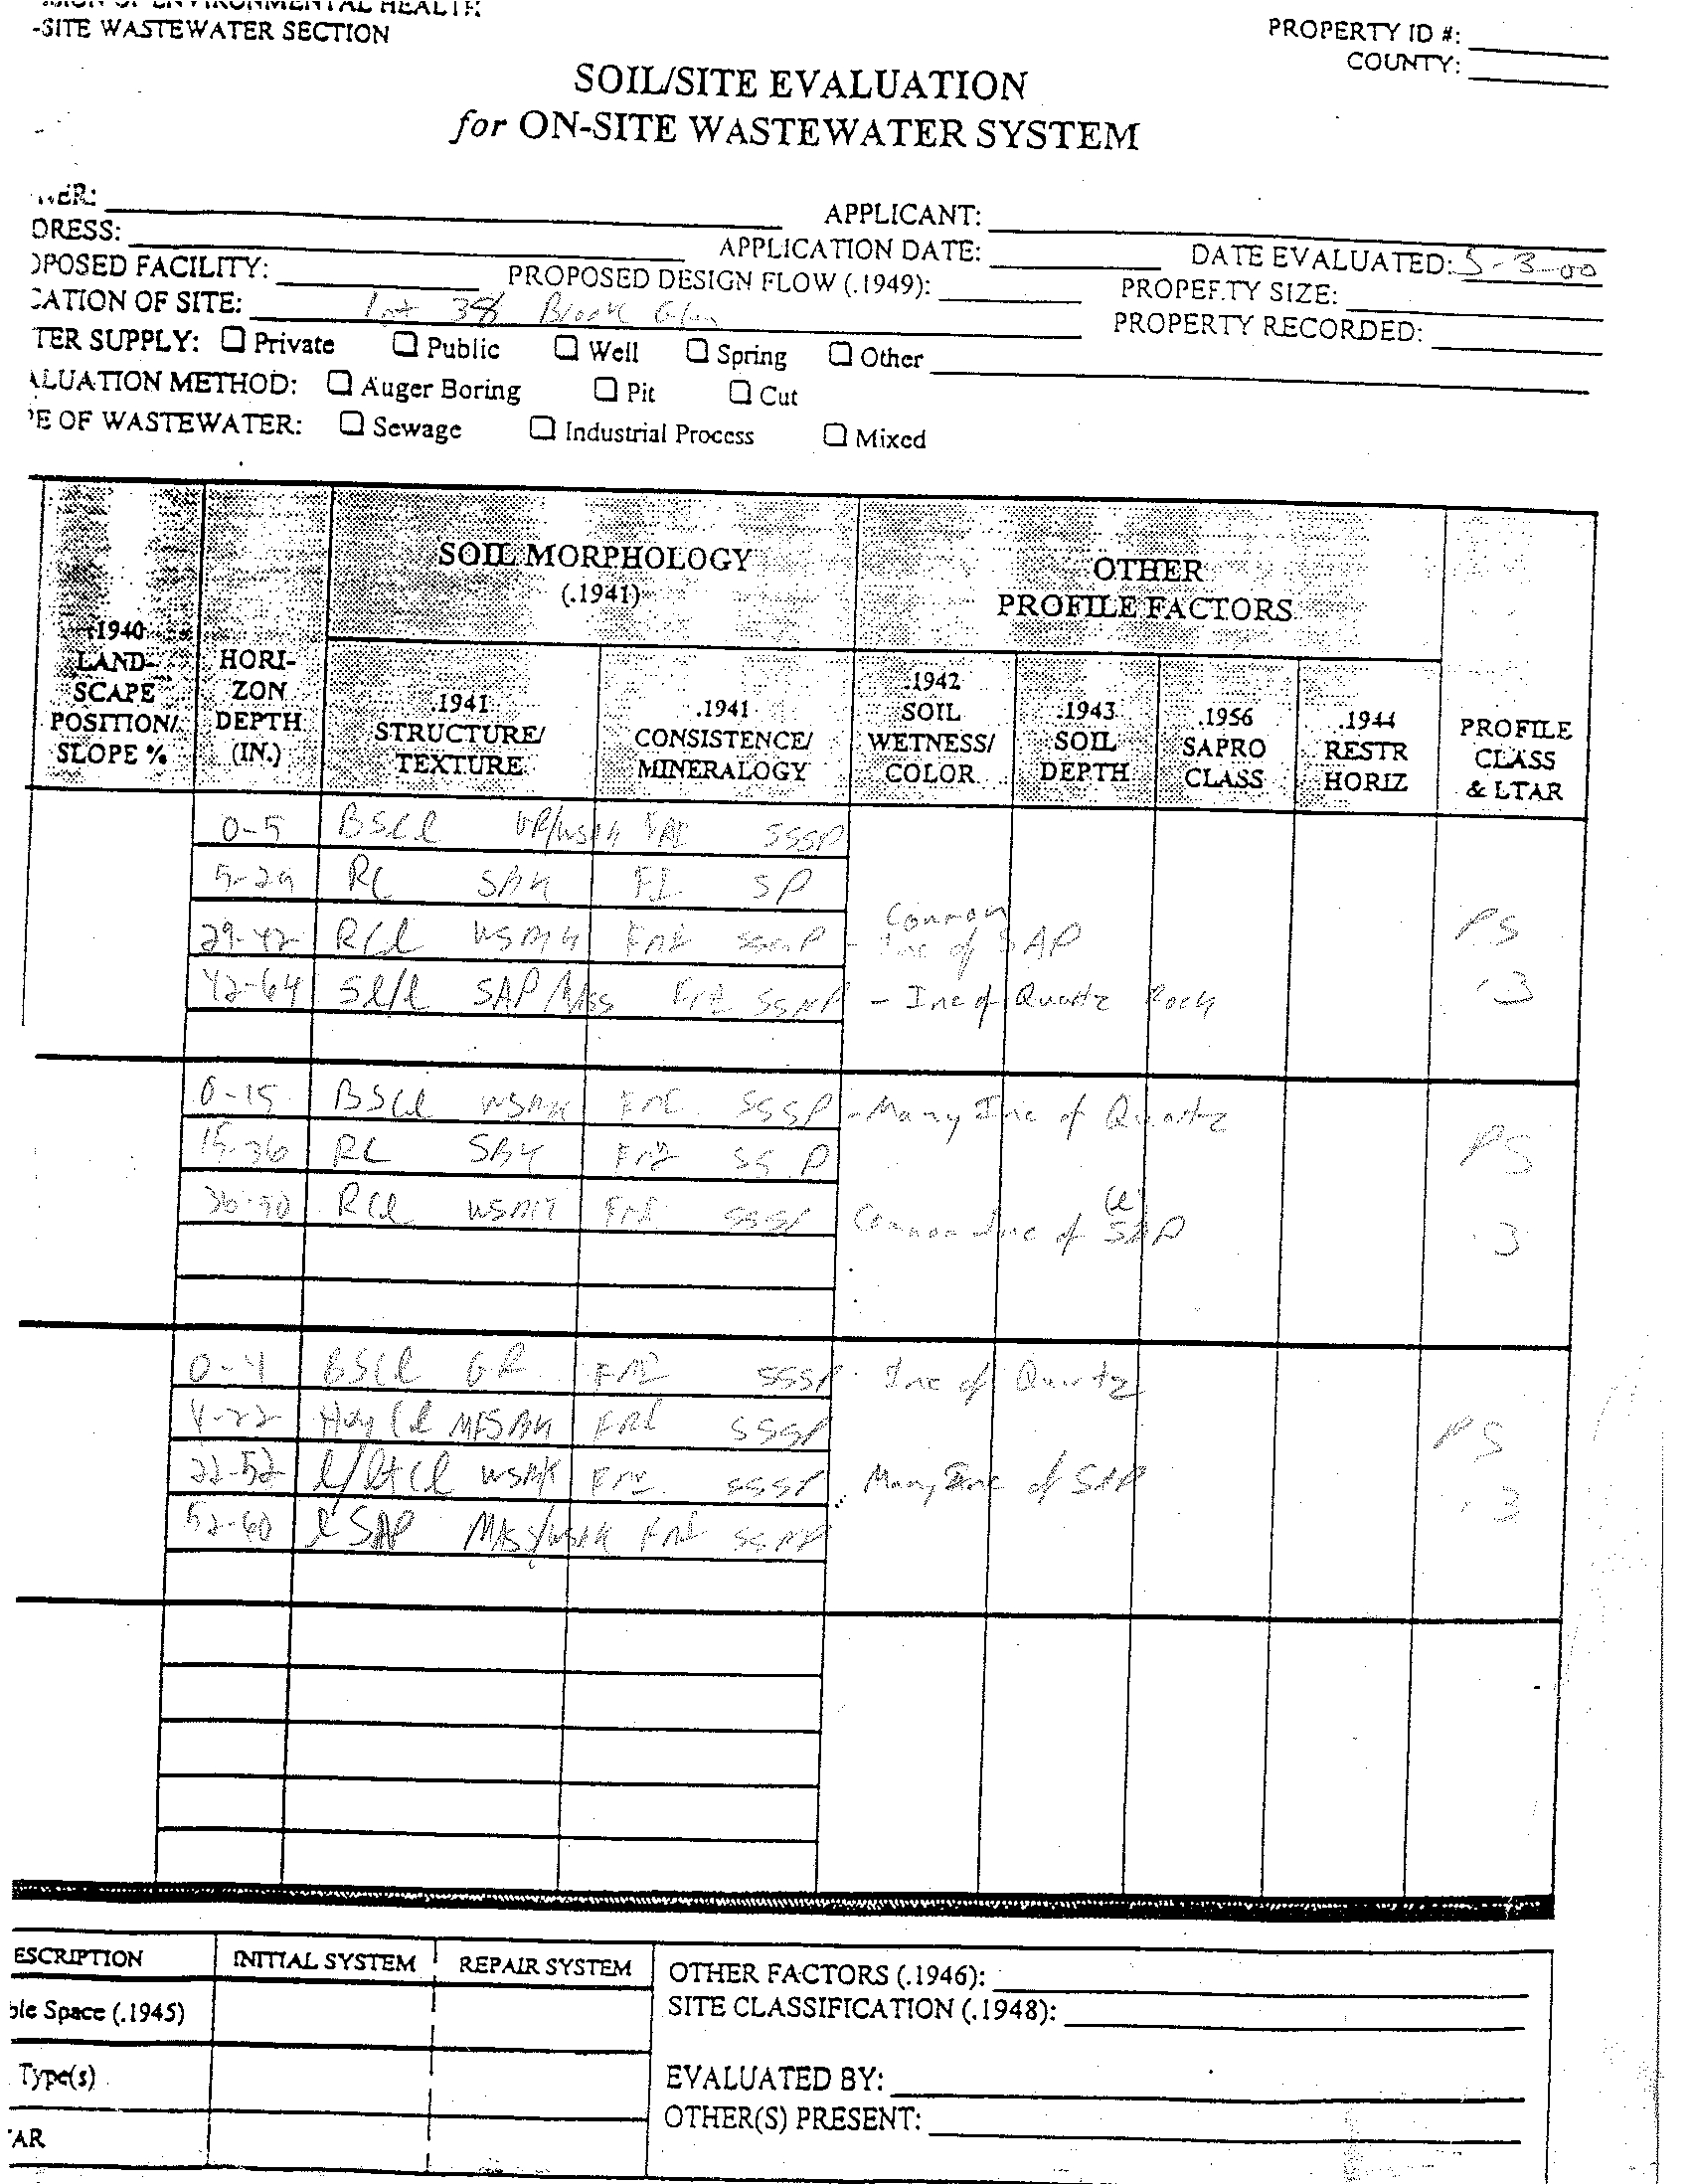 -SITE WASTEWATER SECTION
PROPERTY ID #:
COUNTY:
SOIL/SITE EVALUATION
for ON-SITE WASTEWATER SYSTEM
APPLICANT:
DRESS:
APPLICATION DATE:
DATE EVALUATED: 5-3-00
OPOSED FACILITY:
PROPOSED DESIGN FLOW (.1949):
PROPERTY SIZE:
CATION OF SITE: Lot 38 Brook Glen
PROPERTY RECORDED:
TER SUPPLY: Private Public Well Spring Other
ALUATION METHOD: Auger Boring Pit Cut
PE OF WASTEWATER: Sewage Industrial Process Mixed
SOIL MORPHOLOGY
(.1941)
OTHER
PROFILE FACTORS
.1940
LAND-
SCAPE
POSITION/
SLOPE %
HORI-
ZON
DEPTH
(IN.)
.1941
STRUCTURE/
TEXTURE
.1941
CONSISTENCE/
MINERALOGY
.1942
SOIL
WETNESS/
COLOR
.1943
SOIL
DEPTH
.1956
SAPRO
CLASS
.1944
RESTR
HORIZ
PROFILE
CLASS
& LTAR
0-5 BSCl SSSP
5-29 RC SBK FI SP
Common
29-42 RCl WSBK Inc of SAP
PS
42-64 Sl/l SAP/Mass - Inc of Quartz Rock
.3
0-15 BSCl WSBK SSSP - Many Inc of Quartz
15-36 RC SBK SS P
PS
36-50 RCl WSBK SSSP Common Inc of Cl SAP
.3
0-4 BSCl GR SSSP Inc of Quartz
4-22 SSSP
PS
22-52 WSBK SSSP Many Inc of SAP
.3
52-60 l SAP Mass/WSBK
ESCRIPTION
INITIAL SYSTEM
REPAIR SYSTEM
OTHER FACTORS (.1946):
SITE CLASSIFICATION (.1948):
ble Space (.1945)
Type(s)
EVALUATED BY:
OTHER(S) PRESENT: